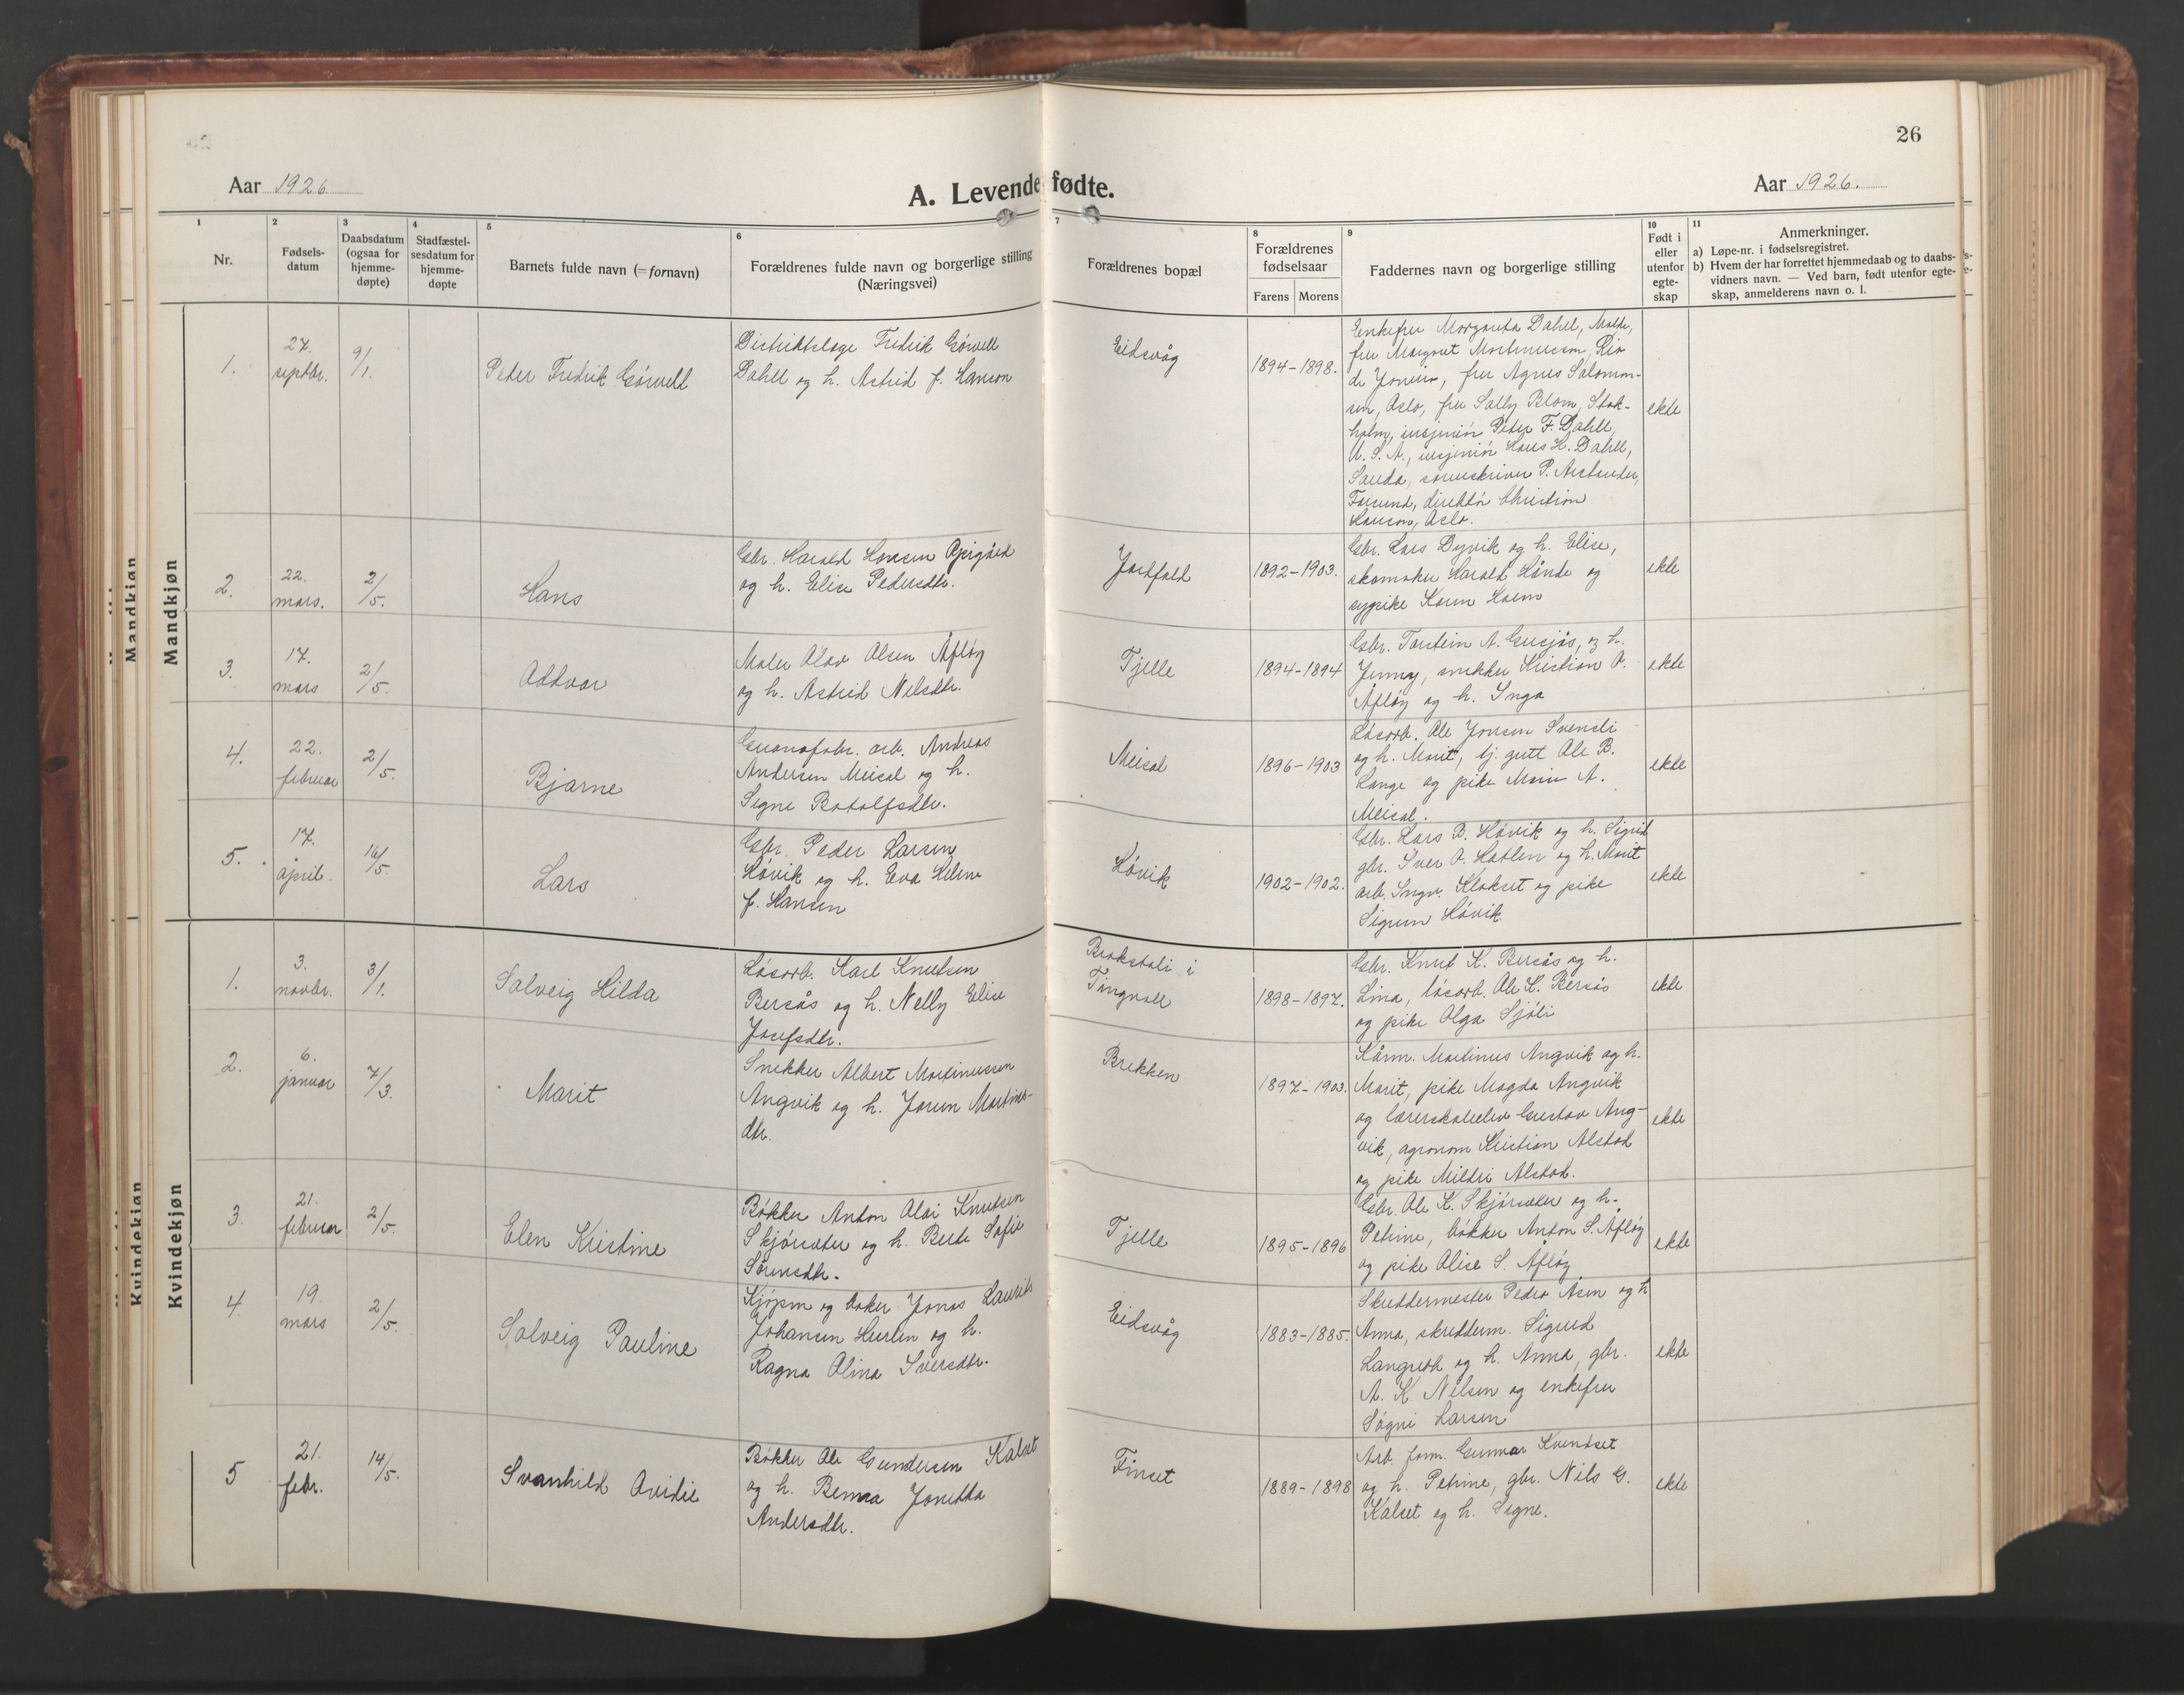 26
Aar 1926.
A. Levendefødte.
Aar 1926.
1
Nr.
2
Fødsels-
datum
3
Daabsdatum
(ogsaa for
hjemme-
døpte)
4
Stadfæstel-
sesdatum for
hjemme-
døpte
5
Barnets fulde navn (= fornavn)
6
Forældrenes fulde navn og borgerlige stilling
(Næringsvei)
7
Forældrenes bopæl
8
Forældrenes
fødselsaar
Farens Morens
9
Faddernes navn og borgerlige stilling
10
Født i
eller
utenfor
egte-
skap
11
Anmerkninger.
a) Løpe-nr. i fødselsregistret.
b) Hvem der har forrettet hjemmedaab og to daabs-
vidners navn. — Ved barn, født utenfor egte-
skap, anmelderens navn o. l.
Mandkjøn
1.
27.
septbr.
9/1.
Peter Fredrik Görvell
Distriktslæge Fredrik Görvell
Dahll og h. Astrid f. Hanson
Eidsvåg
1894-1898.
Enkefru Margareta Dahll, Molde,
fru Margret Mortensson, Rio
de Janeiro, fru Agnes Salomon-
sen, Oslo, fru Sally Blom, Stok-
holm, insjeniör Peter F. Dahll,
U. S. A., insjeniör Hans H. Dahll,
Sauda, sorenskriver P.
direktör Christian
Hanson, Oslo.
ekte
2.
22.
mars.
2/5.
Hans
Gbr. Harald Hansen
og h. Elise Pedersdtr.
Jordfald
1892-1903.
Gbr. Lars Dyvik og h. Elise,
skomaker Harald Hånde og
sypike Karen
ekte
3.
17.
mars
2/5.
Oddvar
Maler Olav Olsen Åfløy
og h. Astrid Nilsdtr.
Tjelle
1894-1894
Gbr. Torstein A. Gusjås, og h.
Jenny, snekker Kristian O.
Åfløy og h. Inga
ekte
4.
22.
februar
2/5.
Bjarne
Guanofabr. arb. Andreas
Andersen Meisal og h.
Signe Botolfsdtr.
Meisal
1896-1903
Løsarb. Ole Jonsen Svensli
og h. Marit, tj. gutt Ole B.
Lange og pike Marie A.
Meisal.
ekte
5.
17.
april.
16/5.
Lars
Gbr. Peder Larsen
Høvik og h. Eva Helene
f. Hansen
Høvik
1902-1902.
Gbr. Lars B. Høvik og h. Sigrid
gbr. Iver O. Hatlen og h. Marit
arb. Ingv. Klokset og pike
Sigrun Høvik.
ekte
Kvindekjøn
1.
3.
novbr.
3/1.
Solveig Hilda
Løsarb. Karl Knutsen
Bersås og h. Nelly Elise
Josefsdtr.
Brokstoli i
Tingvoll
1898-1897.
Gbr. Knut K. Bersås og h.
Lina, løsarb. Ole K. Bersås
og pike Olga Sjøli
ekte
2.
6.
januar
7/3.
Marit
Snekker Albert Martinussen
Angvik og h. Jorun Martines-
dtr.
Brekken
1897-1903.
Kårm. Martinus Angvik og h.
Marit, pike Magda Angvik
og lærerskoleelev Gustav Ang-
vik, agronom Kristian Alstad
og pike Mildri Alstad.
ekte
3.
21.
februar
2/5.
Elen Kristine
Bøkker Anton Olai Knutsen
Skjørsæter og h. Berte Sofie
Sørensdtr.
Tjelle
1895-1896
Gbr. Ole K. Skjørsæter og h.
Petrine, bøkker Anton S. Åfløy
og pike Olise S. Åfløy
ekte
4
19.
mars
2/5.
Solveig Pauline
Kjøpm og baker Jonas Laurits
Johansen Husten og h.
Ragna Olina Iversdtr.
Eidsvåg
1883-1885.
Skreddermester Pedro Åsen og h
Anna, skredderm. Sigurd
Langseth og h. Anna, gbr.
A. K. Nilsen og enkefru
Søgni Larsen
ekte
5
21.
febr.
14/5.
Svanhild Ovidie
Bøkker Ole Gundersen Kalset
og h. Benna Jonetta
Andersdtr.
Finset
1889-1898
Arb. form. Gunnar Kvendset
og h. Petrine, gbr. Nils G.
Kalset og h. Signe.
ekte